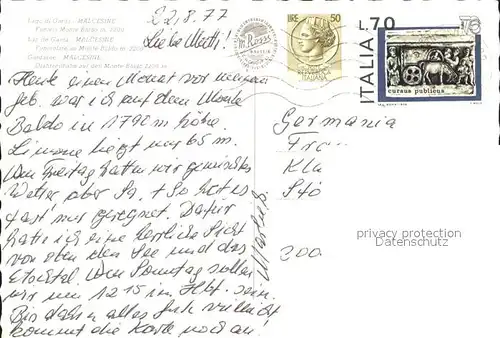 Lago di Garda - MALCESINE
Funivia Monte Baldo m. 1790
Lac de Garda - MALCESINE
Gardasee - MALCESINE
22.8.77
Liebe Mutti!
Heute einen Monat vor meinem
Geb. war ich auf dem Monte
Baldo in 1790 m Höhe.
Limone liegt nur 65 m.
Am Freitag hatten wir gemischtes
Wetter aber Sa. + So hat es
fast nur geregnet. Dafür
hatte ich eine herrliche Sicht
von oben den See und das
Etschtal. Am Sonntag sollen
wir um 12 15 im Hbf. sein.
Bis dahin alles Gute vielleicht
kommt die Karte noch an!
LIRE 50
ITALIANE
ITALIA 70
cursus publicus
Germania
Fr
Klu
840
200
privacy protection
Datenschutz